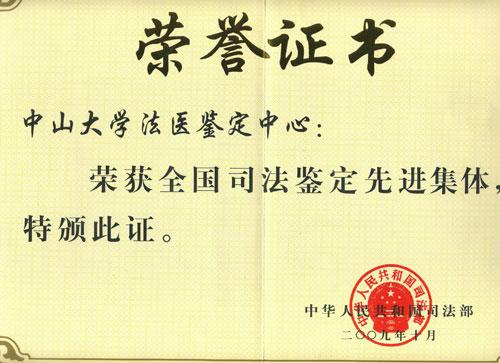 荣誉证书
中山大学法医鉴定中心：
荣获全国司法鉴定先进集体，
特颁此证。
中华人民共和国司法部
中华人民共和国司法部
二〇〇九年十月